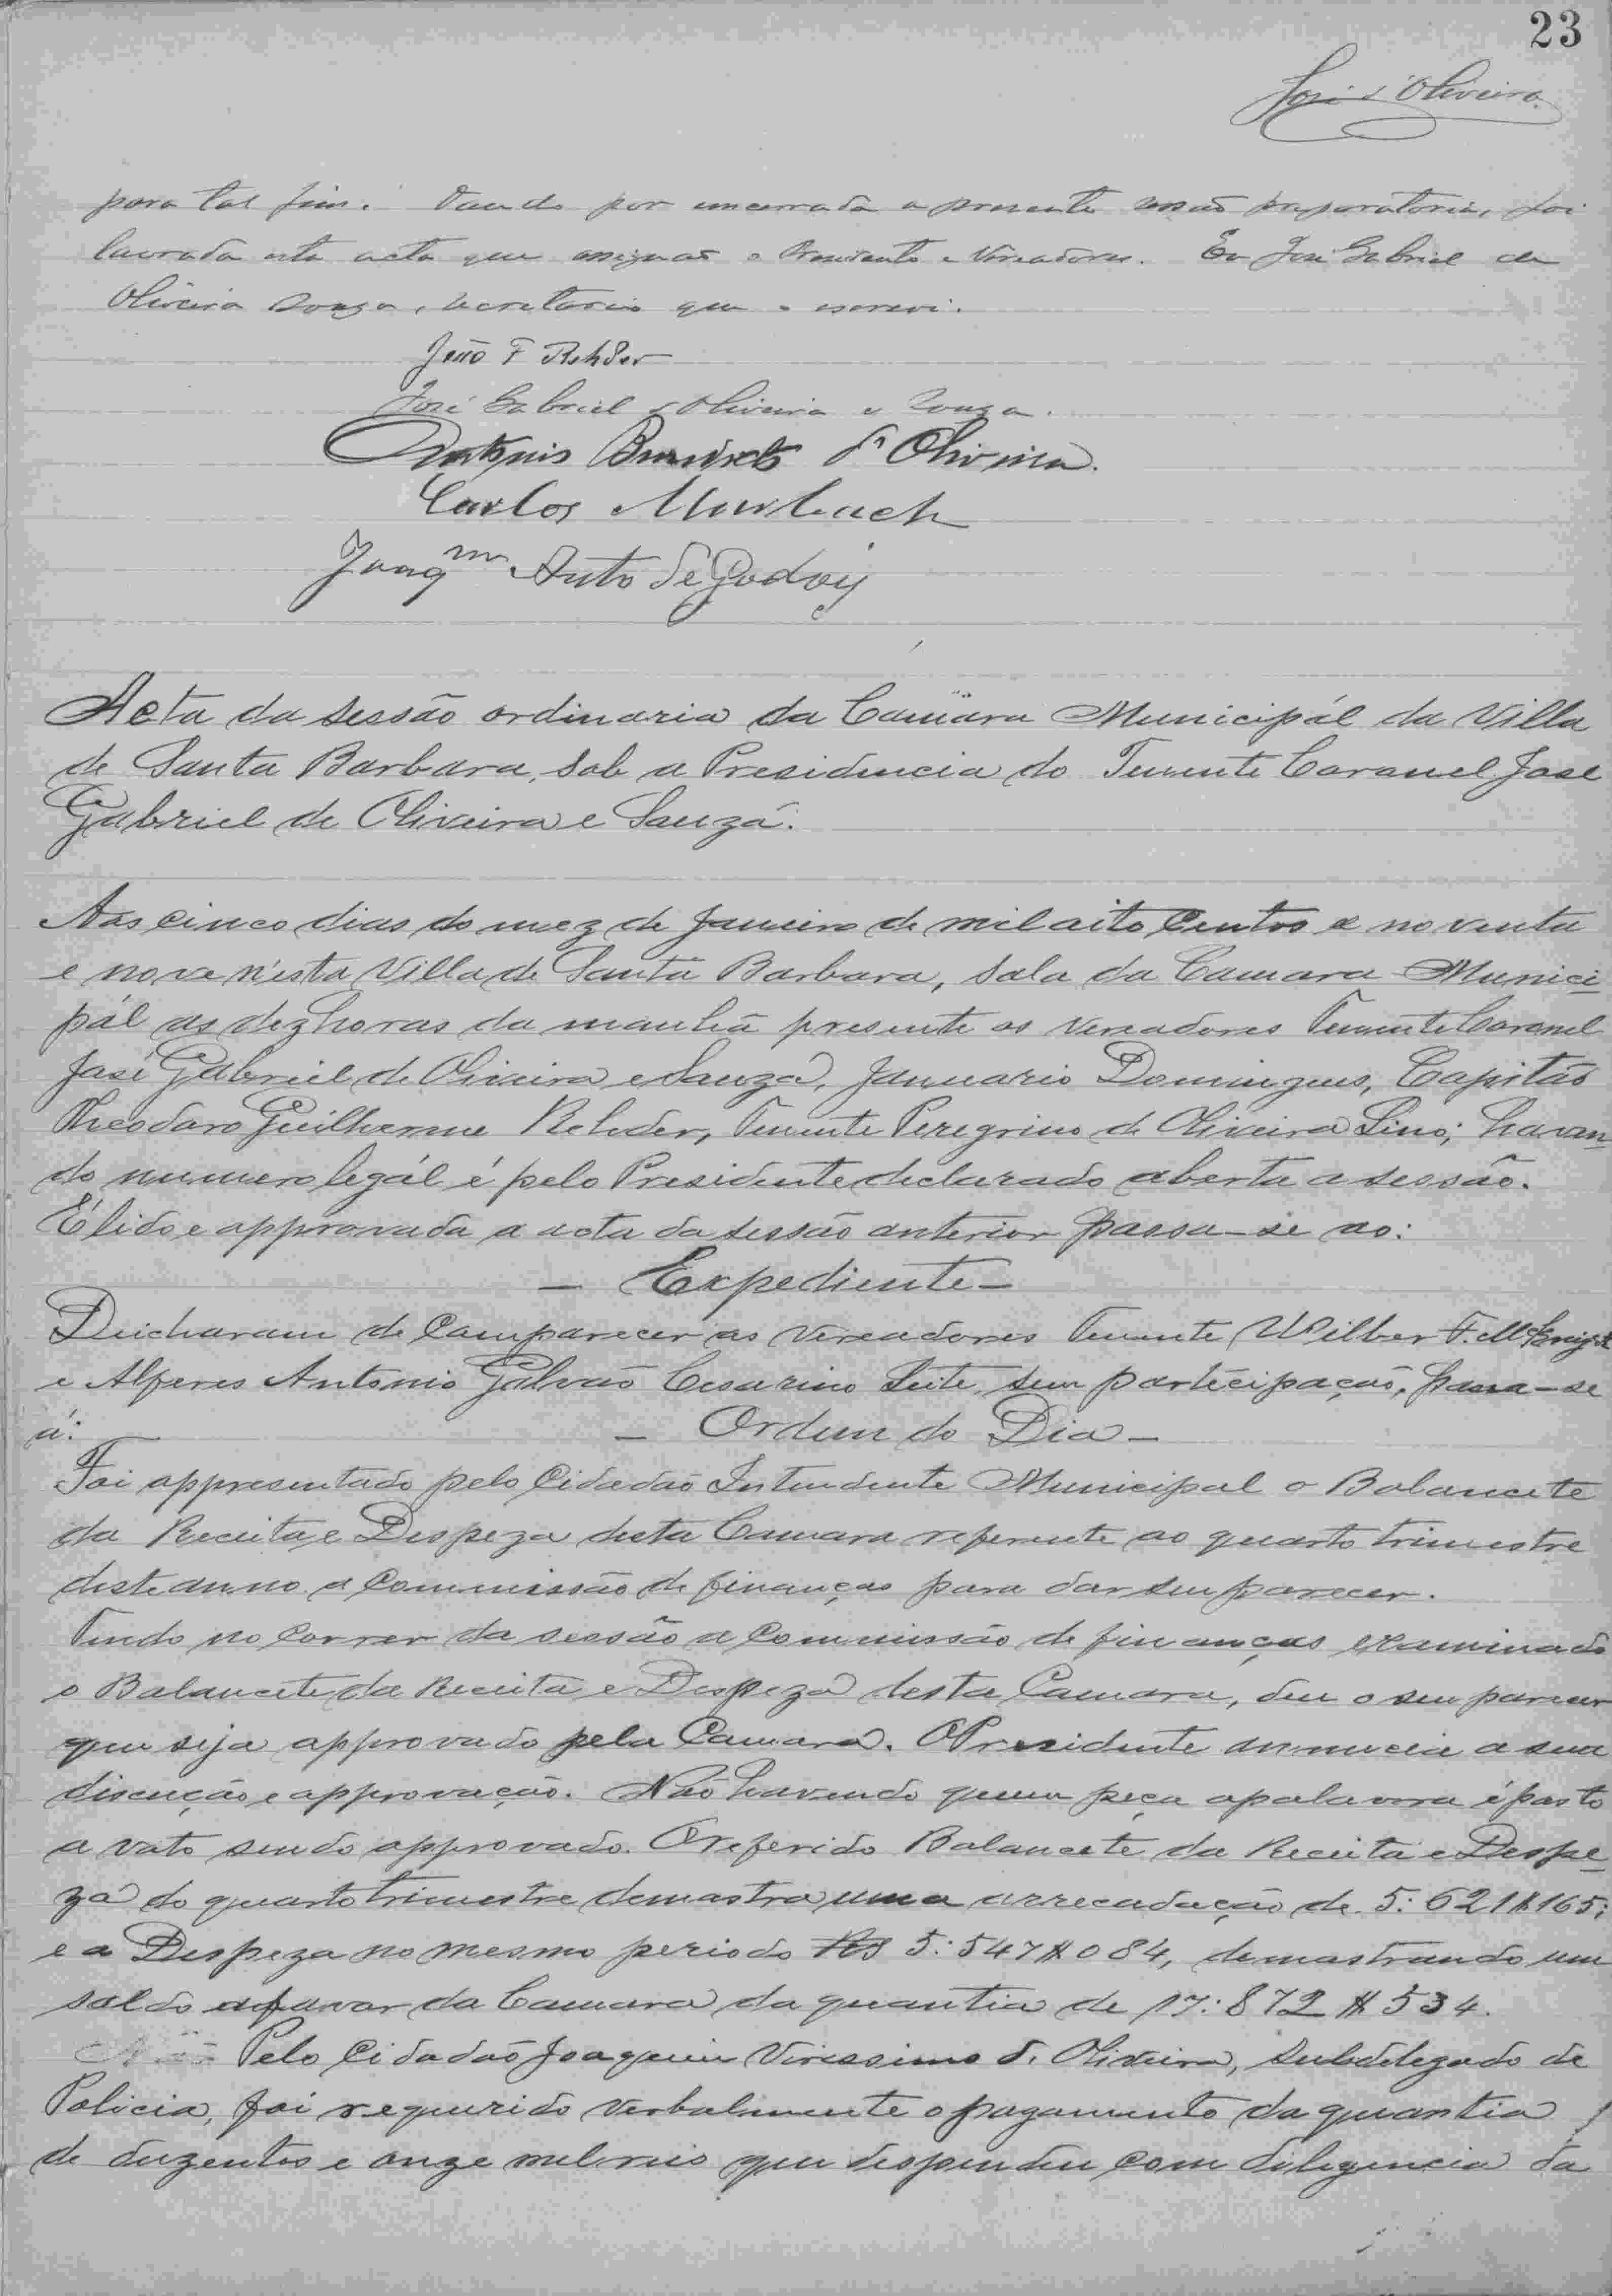 23
José d'Oliveira
para tal fim. Dando por encerrada a presente sessão preparatoria, foi
lavrada esta acta que assignão o Presidente e Vereadores. Eu José Gabriel de
Oliveira Souza, secretario que o escrevi.
João F Rehder
José Gabriel d'Oliveira e Souza.
Antonio Benedicto d'Oliveira.
Carlos Murbach
Joaqm Anto de Godoy
Acta da sessão ordinaria da Camara Municipál da Villa
de Santa Barbara, sob a Presidencia do Tenente Coronel José
Gabriel de Oliveira e Souza.
Aos cinco dias do mez de Janeiro de mil oito centos e noventa
e nove n'esta Villa de Santa Barbara, sala da Camara Munici
pál as dez horas da manhã presente os Vereadores Tenente Coronel
José Gabriel de Oliveira e Souza, Januario Domingues, Capitão
Theodoro Guilherme Rehder, Tenente Peregrino de Oliveira Lino; havan
do numero legál é pelo Presidente declarado aberta a sessão.
É lido e approvada a acta da sessão anterior passa-se ao:
- Expediente -
Deicharam de Comparecer os Vereadores Tenente Wilber F. McKnight
e Alferes Antonio Galvão Cesarino Leite, sem partecipação, passa-se
á:
- Ordem do Dia -
Foi appresentado pelo Cidadão Intendente Municipal o Balancete
da Receita e Despeza desta Camara referente ao quarto trimestre
deste anno a Commissão de finanças para dar seu parecer.
Tendo no Correr da sessão a Commissão de finanças examinado
o Balancete da Receita e Despeza desta Camara, deu o seu parecer
que seja approvado pela Camara. O Presidente annuncia a sua
discução e approvação. Não havendo quem peça a palavra é posto
a voto sendo approvado. O referido Balancete da Receita e Despe
za do quarto trimestre demostra uma arrecadação de 5:621$165;
e a Despeza no mesmo periodo Rs 5:547$084, demostrando um
saldo a favor da Camara da quantia de 17:872$534.
Pelo Cidadão Joaquim Virissimo d'Oliveira, subdelegado de
Policia, foi requerido verbalmente o pagamento da quantia
de duzentos e onze mil reis que despendeu com diligencia da